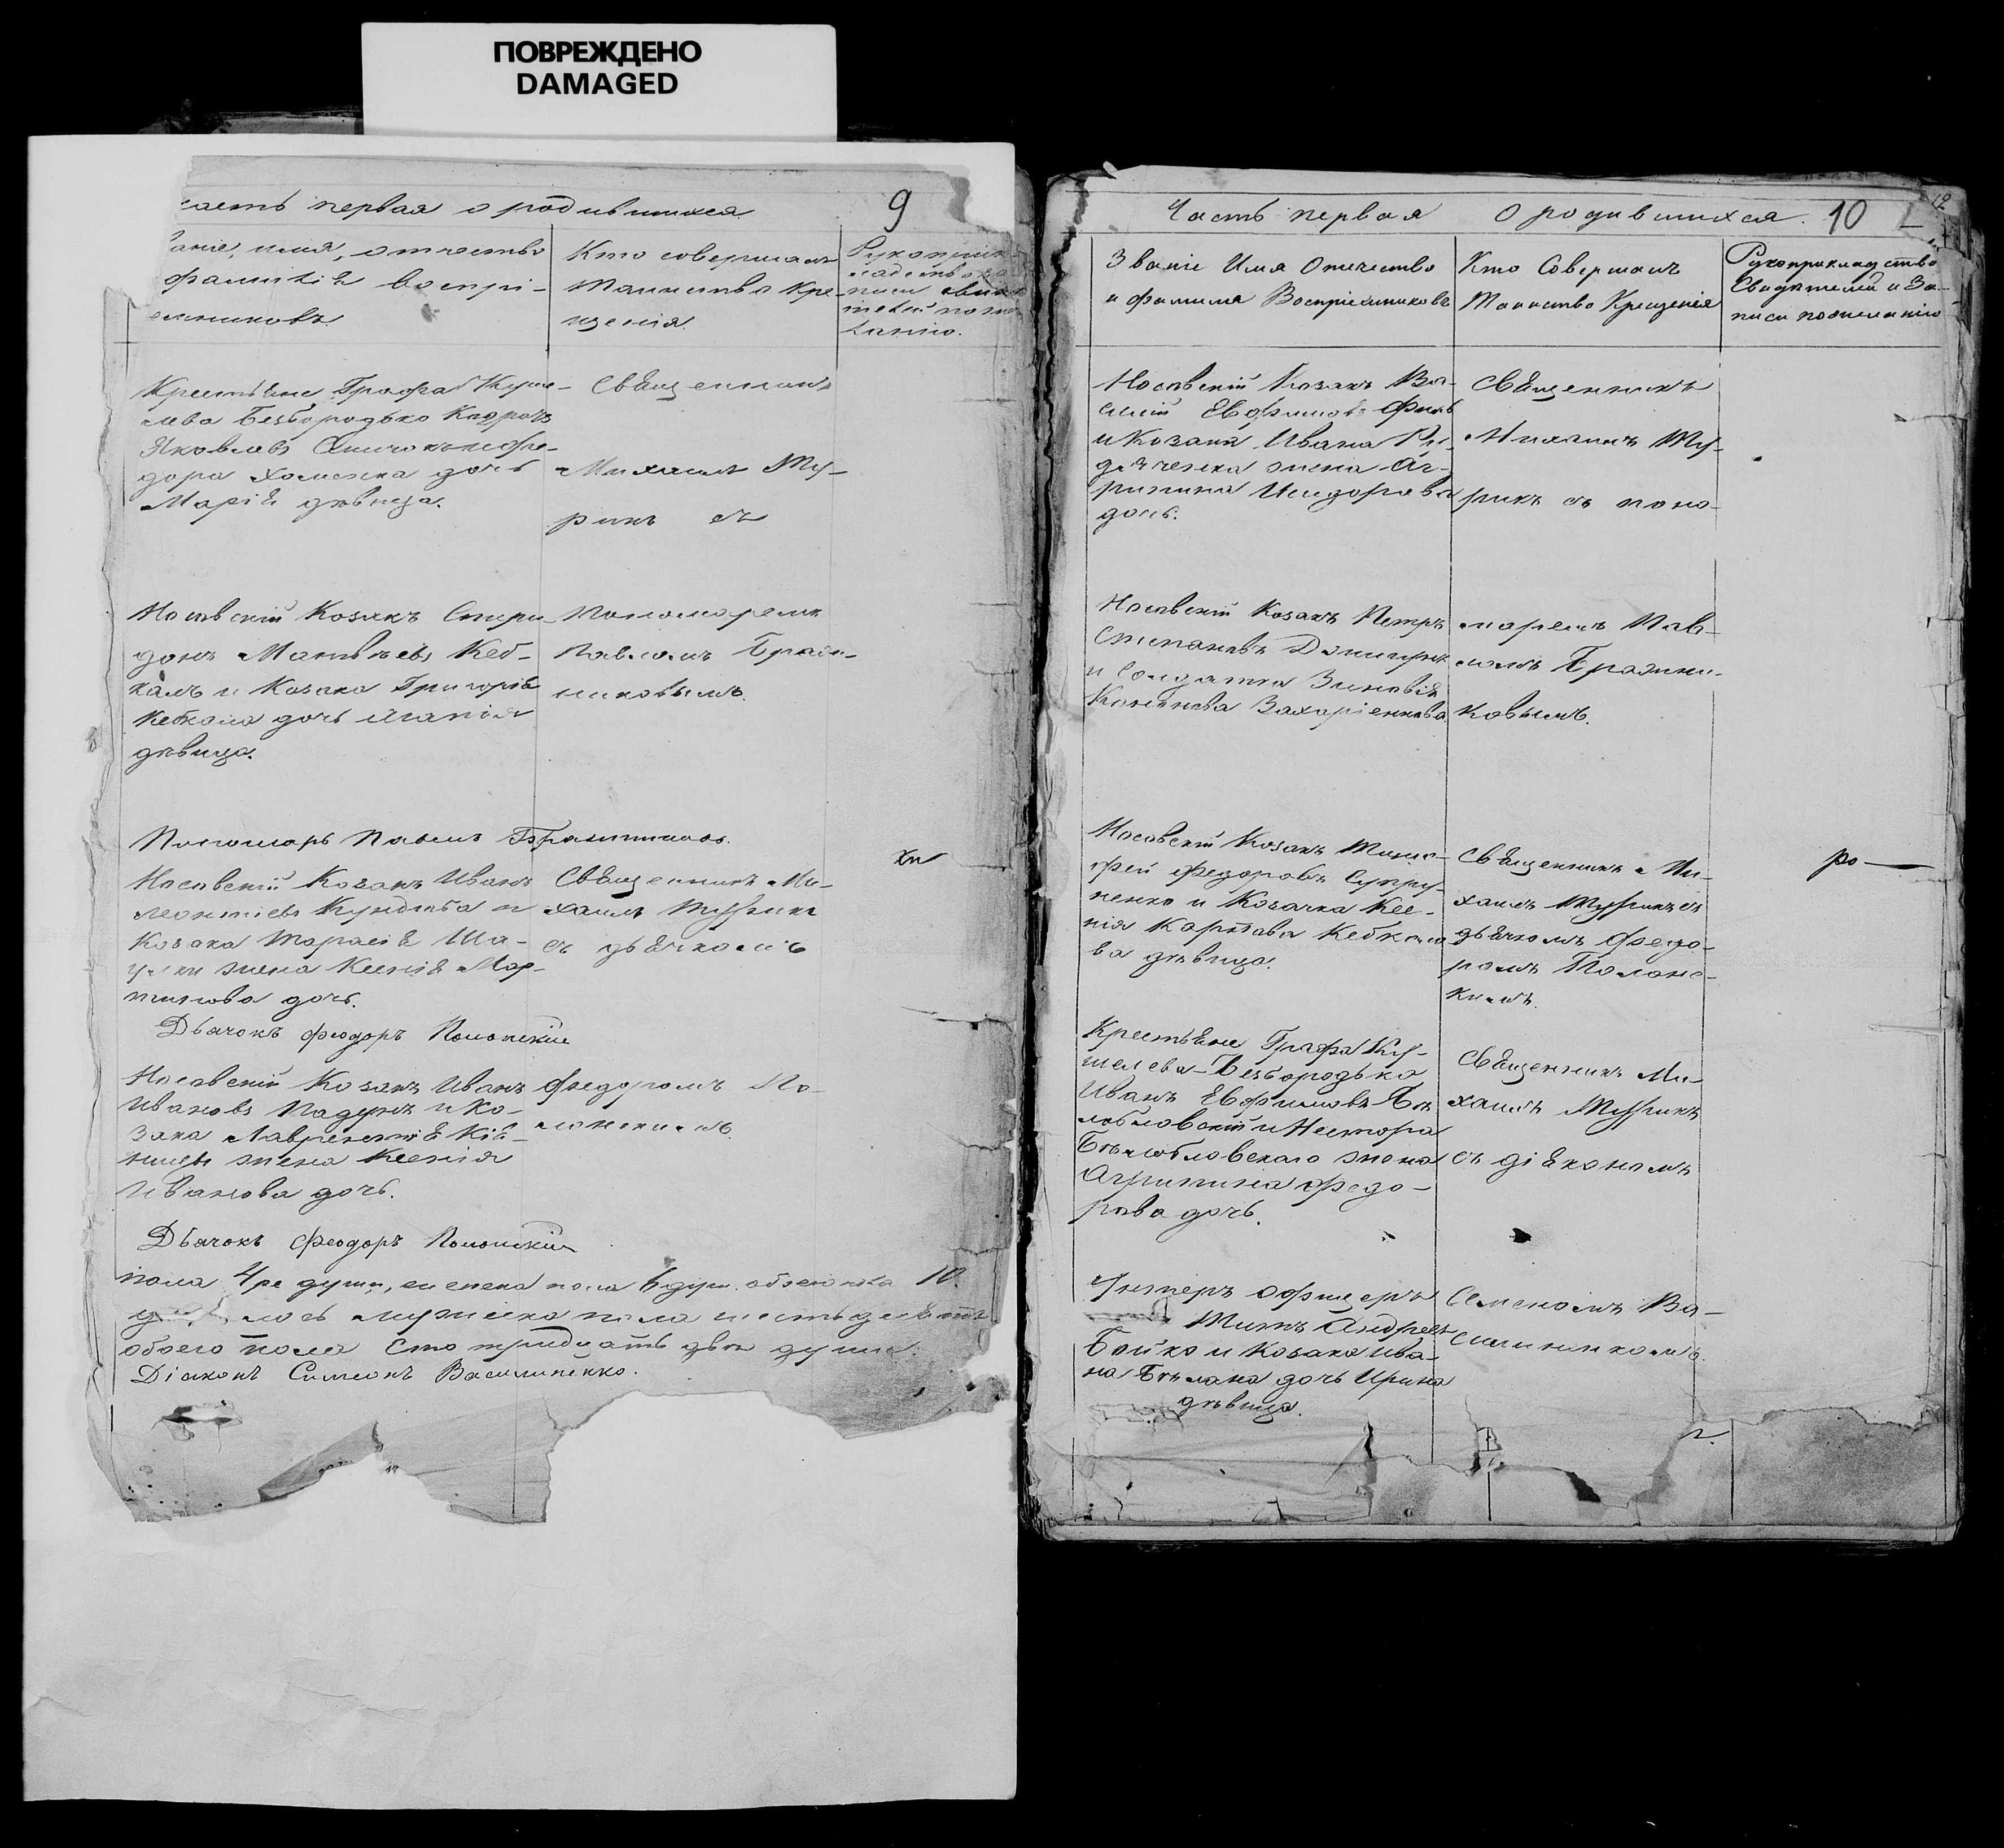 ПОВРЕЖДЕНО
DAMAGED
часть первая о родившихся
9
званіе, имя, отчество
фамилія воспрі-
емниковъ.
Кто совершалъ
Таинство Кре-
щенія.
Рукоприк-
Крестьяне Графа Куше-
лева Безбородько
Яковлевъ
дора Хоменка дочь
Марія дѣвица.
Священникъ
Михаилъ Му-
рикъ съ
Носовскій Козакъ Спири-
донъ Матвѣевъ Кеб-
калъ и Козака Григорія
Кебкала дочь Агапія
дѣвица.
Пономаремъ
Павломъ Бражни-
ковымъ.
Пономарь Павелъ Бражниковъ.
Носовскій Козакъ Иванъ
Леонтіевъ и
Козака Тарасія Ша-
жена Ксенія Мар-
тинова дочь.
Священникъ Ми-
хаилъ Мурикъ
съ дьячкомъ
Дьячокъ Феодоръ Полонскій
Носовскій Козакъ Иванъ
Ивановъ Падунъ и Ко-
зака Лаврентія
жена Ксенія
Иванова дочь.
Федоромъ По-
лонскимъ.
Дьячокъ Феодоръ Полонскій
пола 4ре души, женска пола 6 душ. обоего пола 10.
лось мужеска пола шестьдесятъ
обоего пола Сто тридцать двѣ души.
Діаконъ Симеонъ Василиненко.
Часть первая О родившихся. 10
Званіе Имя Отчество
и фамилія Воспріемниковъ
Кто Совершалъ
Таинство Крещенія
Рукоприкладство
Свидѣтелей и За-
писи по желанію
Носовскій Козакъ Ва-
силій Евфимовъ
и Козака Ивана Ру-
дяченка жена Аг-
рипина Исидорова
дочь.
Священникъ
Михаилъ Му-
рикъ съ поно-
Носовскій Козакъ Петръ
Степановъ
и Солдатка Зиновія
Захаріенкова.
маремъ Пав-
ломъ Бражни-
ковымъ.
Носовскій Козакъ Тимо-
фей Федоровъ Супру-
ненко и Козачка Ксе-
нія Карпова Кебкало-
ва дѣвица.
Священникъ Ми-
хаилъ Мурикъ съ
дьячкомъ Федо-
ромъ Полонс-
кимъ.
Крестьяне Графа Ку-
шелева-Безбородька
Иванъ Евфимовъ Бѣ-
лобловскій и Нестора
Бѣлобловскаго жена
Агрипина Федо-
рова дочь.
Священникъ Ми-
хаилъ Мурикъ
съ діякономъ
Унтеръ офицеръ
Титъ Андреевъ
Бойко и Козака Ива-
на Бѣлана дочь Ирина
дѣвица.
Семеномъ Ва-
силиненкомъ.